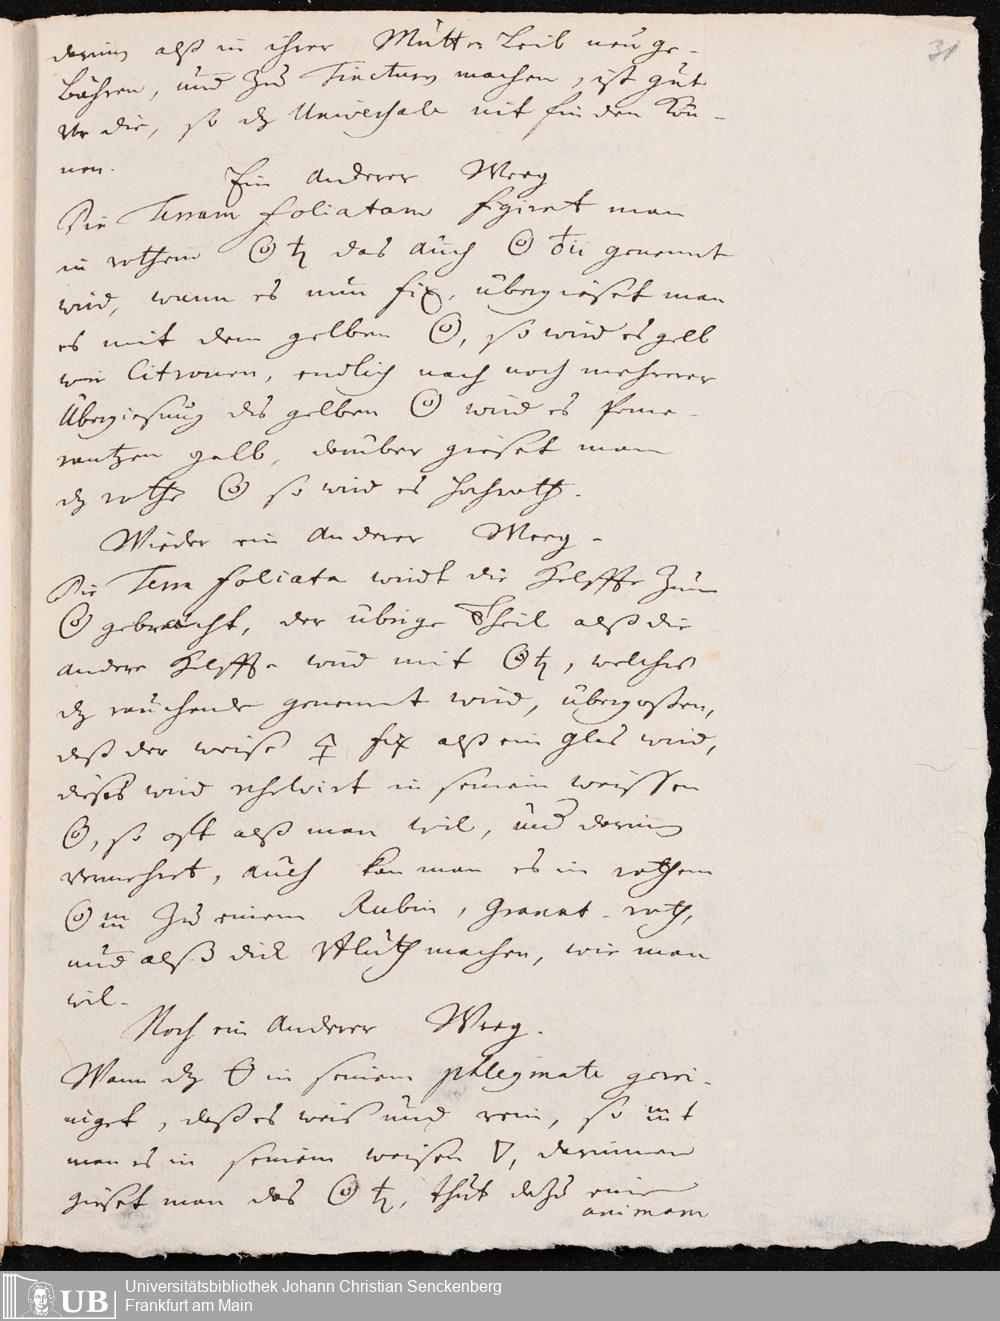 31
darinn alß in ihrer Mutter Leib neu ge-
bähren, und zu Tinctur machen, ist gut
vor die, so dz Universale nit finden kön-
nen.
Ein anderer Weeg
Die Terram foliatam figiret man
in rothem ☉ ♄ das auch ☉ ♁ii genennt
wird, wann es nun fix, übergießet man
es mit dem gelben ☉, so wird es gelb
wie Citronen, endlich nach noch mehrerer
Übergießung des gelben ☉ wird es Pome-
rantzen gelb, darüber gießet man
dz rothe ☉ so wird es hochroth.
Wieder ein anderer Weeg.
Die Terra foliata wird die Helffte zum
☉ gebraucht, der übrige Theil alß die
andere Helffte wird mit ☉♄, welches
dz rauchende genennt wird, übergoßen,
daß der weiße 🜍 fix alß ein Glas wird,
dießes wird resolvirt in seinem weissen
☉, so offt alß man wil, und darinn
vermehret, auch kan man es in rothem
☉ zu einem Rubin, Granat-roth,
und alß dick Bluth machen, wie man
wil.
Noch ein anderer Weeg.
Wann dz 🜔 in seinem phlegmate gerei-
niget, daß es weiß und rein, so
man es in seinem weisen ▽, darinnen
gießet man das ☉ ♄, thut dazu eine
animam
Universitätsbibliothek Johann Christian Senckenberg
Frankfurt am Main
UB